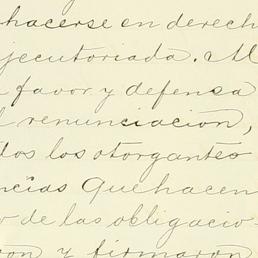 hacerse en derech
jecutoriada. Al
favor y defensa
renunciacion,
dos los otorgantes
ncias que hacen
o de las obligacio-
ron y firmaron